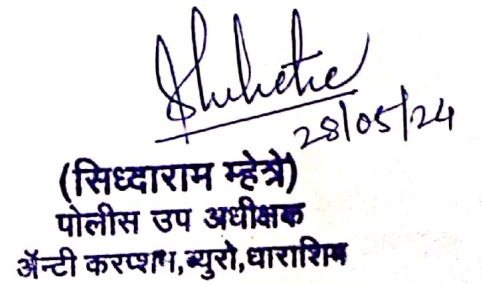 28/05/24
(सिध्दाराम म्हेत्रे)
पोलीस उप अधीक्षक
ॲन्टी करप्शन,ब्युरो,धाराशिव